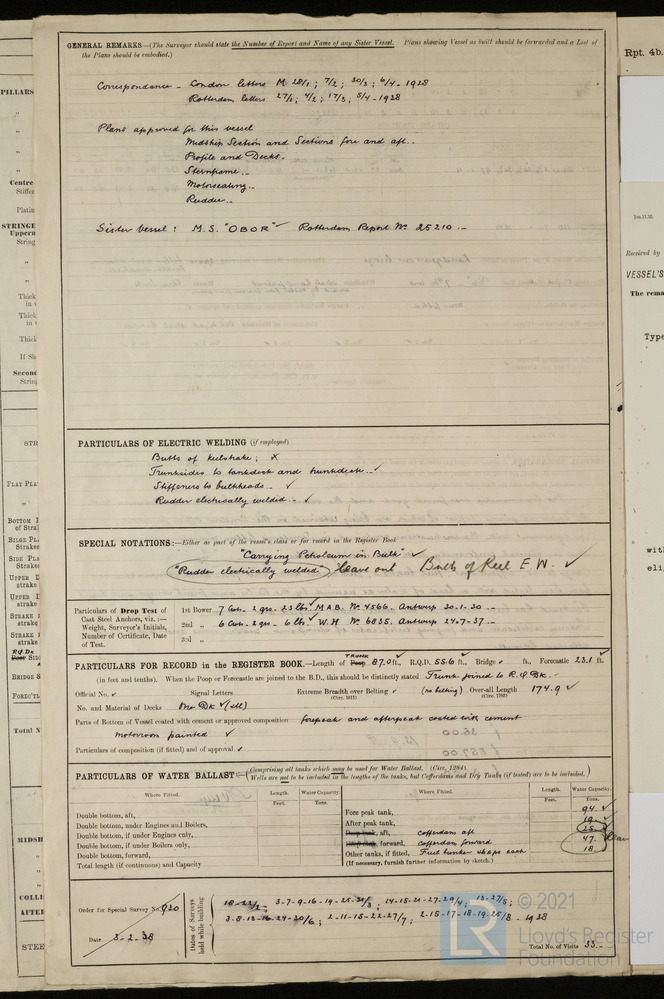 GENERAL REMARKS—(The Surveyor should state the Number of Report and Name of any Sister Vessel. Plans showing Vessel as built should be forwarded and a List of
the Plans should be embodied.)
Rpt. 4b.
Correspondence - London letters M 28/1; 7/2; 30/3; 6/4 - 1938
Rotterdam letters 27/1; 4/2; 17/3; 5/4 - 1938
PILLARS
Plans approved for this vessel
Midship Section and Sections fore and aft.
Profile and Decks.
Sternframe.
Motorseating.
Rudder.
Centre
Sister Vessel: M.S. "OBOR" Rotterdam Report No 25210.-
STRINGE
Received by
VESSEL'S
The rema
Type
PARTICULARS OF ELECTRIC WELDING (if employed)
Butts of keelstrake; X
Trunksides to tankdeck and trunkdeck. ✓
Stiffeners to bulkheads. ✓
Rudder electrically welded. ✓
FLAT PLA
SPECIAL NOTATIONS:—Either as part of the vessel's class or for record in the Register Book
"Carrying Petroleum in Bulk" ✓
"Rudder electrically welded" leave out Butts of Keel E.W. ✓
Particulars of Drop Test of
Cast Steel Anchors, viz.:—
Weight, Surveyor's Initials,
Number of Certificate, Date
of Test.
1st Bower 7 Cwts. 2 qrs. 23 lbs. ✓ M.A.B. No. 4566. Antwerp 30-1-30.—
2nd „ 6 Cwts. 2 qrs - 6 lbs. ✓ W.H No. 6835. Antwerp 24-7-37.—
3rd „
PARTICULARS FOR RECORD in the REGISTER BOOK.—Length of Poop TRUNK 87.0 ft., R.Q.D. 55.6 ft., Bridge ✓ ft., Forecastle 23.1 ft.
(in feet and tenths). When the Poop or Forecastle are joined to the B.D., this should be distinctly stated Trunk joined to R.Q.Dk.
Official No. ✓ Signal Letters Extreme Breadth over Belting ✓ (no belting) Over-all Length 174.9 ✓
(Circ. 1611) (Circ. 1703)
No. and Material of Decks One Dk ✓ (stl)
Parts of Bottom of Vessel coated with cement or approved composition forepeak and afterpeak coated with cement
motorroom painted ✓
Particulars of composition (if fitted) and of approval ✓
PARTICULARS OF WATER BALLAST:—(Comprising all tanks which may be used for Water Ballast. (Circ. 1284).
Wells are not to be included in the lengths of the tanks, but Cofferdams and Dry Tanks (if tested) are to be included.)
Where Fitted. Length. Water Capacity. Where Fitted. Length. Water Capacity.
Feet. Tons. Feet. Tons.
Double bottom, aft,
Double bottom, under Engines and Boilers,
Double bottom, if under Engines only,
Double bottom, if under Boilers only,
Double bottom, forward,
Total length (if continuous) and Capacity
Fore peak tank, 94. ✓
After peak tank, 19 ✓
Deep tank, aft, Cofferdam aft 25
Deep tank, forward, Cofferdam forward 47.
Other tanks, if fitted, Fuel bunker 18
(If necessary, furnish further information by sketch.)
Order for Special Survey
Date 3-2-38
Dates of Surveys
held while building
3-8-13-16-24-30/6; 2-11-15-22-27/7; 2-15-17-18-19-25/8 - 1938
Total No. of Visits 33.-
© 2021
LR
Lloyd's Register
Foundation